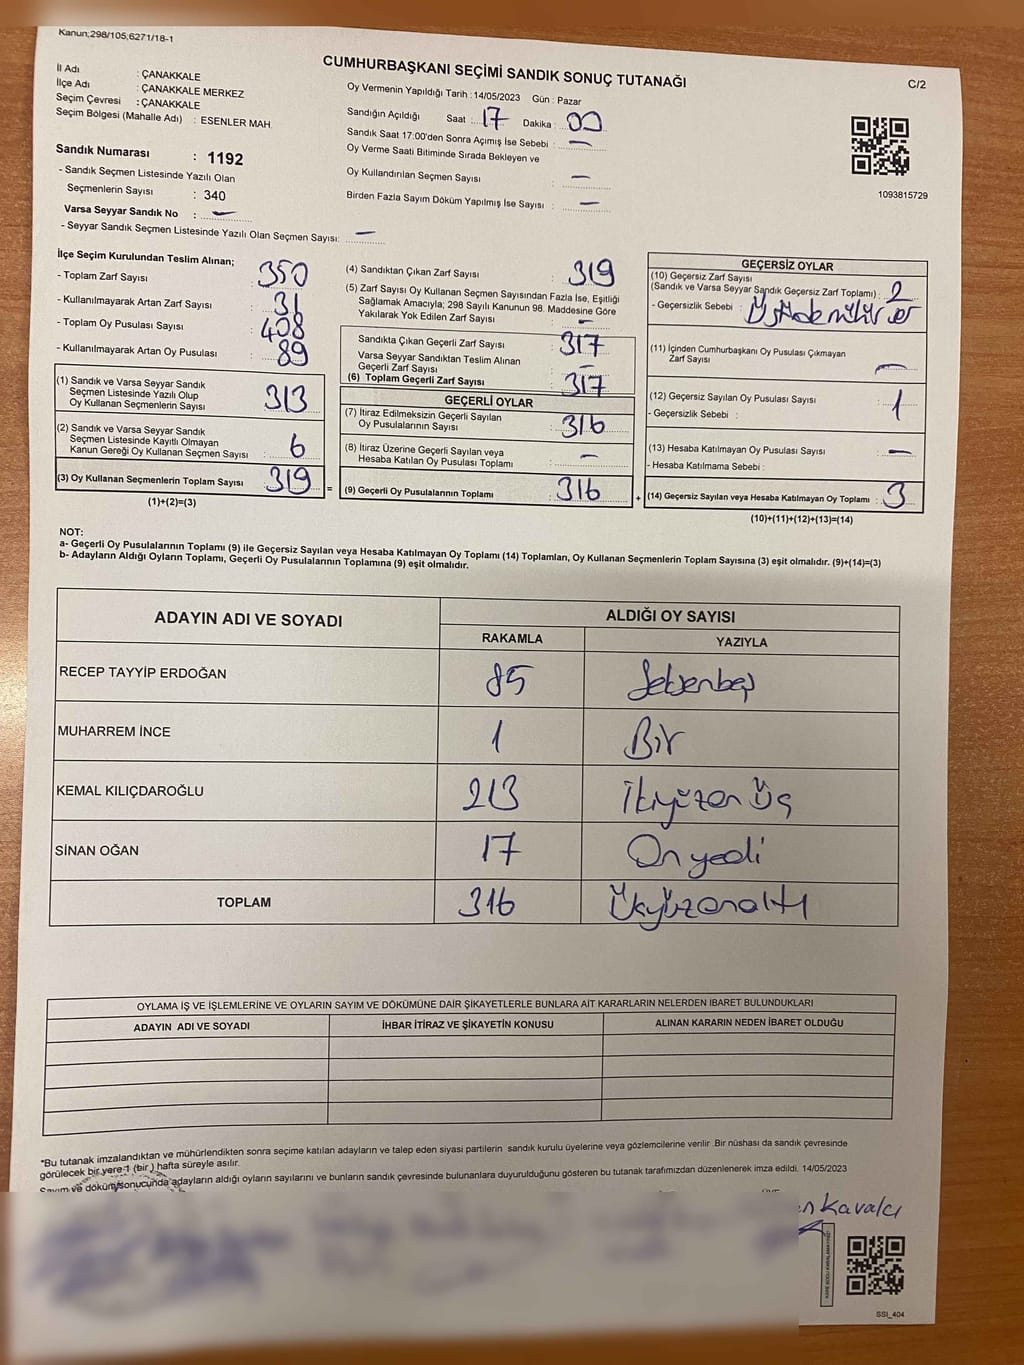 Kanun;298/105,6271/18-1
CUMHURBAŞKANI SEÇİMİ SANDIK SONUÇ TUTANAĞI
C/2
İl Adı : ÇANAKKALE
İlçe Adı : ÇANAKKALE MERKEZ
Seçim Çevresi : ÇANAKKALE
Seçim Bölgesi (Mahalle Adı) : ESENLER MAH.
Oy Vermenin Yapıldığı Tarih : 14/05/2023 Gün : Pazar
Sandığın Açıldığı Saat : 17 Dakika : 00
Sandık Saat 17:00'den Sonra Açımış İse Sebebi : —
Oy Verme Saati Bitiminde Sırada Bekleyen ve
Oy Kullandırılan Seçmen Sayısı : —
Birden Fazla Sayım Döküm Yapılmış İse Sayısı : —
1093815729
Sandık Numarası : 1192
- Sandık Seçmen Listesinde Yazılı Olan
Seçmenlerin Sayısı : 340
Varsa Seyyar Sandık No : —
- Seyyar Sandık Seçmen Listesinde Yazılı Olan Seçmen Sayısı: —
İlçe Seçim Kurulundan Teslim Alınan;
- Toplam Zarf Sayısı : 350
- Kullanılmayarak Artan Zarf Sayısı : 31
- Toplam Oy Pusulası Sayısı : 408
- Kullanılmayarak Artan Oy Pusulası : 89
(1) Sandık ve Varsa Seyyar Sandık
Seçmen Listesinde Yazılı Olup
Oy Kullanan Seçmenlerin Sayısı : 313
(2) Sandık ve Varsa Seyyar Sandık
Seçmen Listesinde Kayıtlı Olmayan
Kanun Gereği Oy Kullanan Seçmen Sayısı : 6
(3) Oy Kullanan Seçmenlerin Toplam Sayısı : 319 =
(1)+(2)=(3)
(4) Sandıktan Çıkan Zarf Sayısı : 319
(5) Zarf Sayısı Oy Kullanan Seçmen Sayısından Fazla İse, Eşitliği
Sağlamak Amacıyla; 298 Sayılı Kanunun 98. Maddesine Göre
Yakılarak Yok Edilen Zarf Sayısı : —
Sandıkta Çıkan Geçerli Zarf Sayısı : 317
Varsa Seyyar Sandıktan Teslim Alınan
Geçerli Zarf Sayısı : —
(6) Toplam Geçerli Zarf Sayısı : 317
GEÇERLİ OYLAR
(7) İtiraz Edilmeksizin Geçerli Sayılan
Oy Pusulalarının Sayısı : 316
(8) İtiraz Üzerine Geçerli Sayılan veya
Hesaba Katılan Oy Pusulası Toplamı : —
(9) Geçerli Oy Pusulalarının Toplamı : 316 +
GEÇERSİZ OYLAR
(10) Geçersiz Zarf Sayısı
(Sandık ve Varsa Seyyar Sandık Geçersiz Zarf Toplamı) : 2
- Geçersizlik Sebebi :
(11) İçinden Cumhurbaşkanı Oy Pusulası Çıkmayan
Zarf Sayısı : —
(12) Geçersiz Sayılan Oy Pusulası Sayısı : 1
- Geçersizlik Sebebi :
(13) Hesaba Katılmayan Oy Pusulası Sayısı : —
- Hesaba Katılmama Sebebi :
(14) Geçersiz Sayılan veya Hesaba Katılmayan Oy Toplamı : 3
(10)+(11)+(12)+(13)=(14)
NOT:
a- Geçerli Oy Pusulalarının Toplamı (9) ile Geçersiz Sayılan veya Hesaba Katılmayan Oy Toplamı (14) Toplamları, Oy Kullanan Seçmenlerin Toplam Sayısına (3) eşit olmalıdır. (9)+(14)=(3)
b- Adayların Aldığı Oyların Toplamı, Geçerli Oy Pusulalarının Toplamına (9) eşit olmalıdır.
ADAYIN ADI VE SOYADI ALDIĞI OY SAYISI
RAKAMLA YAZIYLA
RECEP TAYYİP ERDOĞAN 85 Seksenbeş
MUHARREM İNCE 1 Bir
KEMAL KILIÇDAROĞLU 213 İkiyüzon Üç
SİNAN OĞAN 17 On yedi
TOPLAM 316 Üçyüzonaltı
OYLAMA İŞ VE İŞLEMLERİNE VE OYLARIN SAYIM VE DÖKÜMÜNE DAİR ŞİKAYETLERLE BUNLARA AİT KARARLARIN NELERDEN İBARET BULUNDUKLARI
ADAYIN ADI VE SOYADI İHBAR İTİRAZ VE ŞİKAYETİN KONUSU ALINAN KARARIN NEDEN İBARET OLDUĞU
*Bu tutanak imzalandıktan ve mühürlendikten sonra seçime katılan adayların ve talep eden siyasi partilerin sandık kurulu üyelerine veya gözlemcilerine verilir .Bir nüshası da sandık çevresinde
görülecek bir yere 1 (bir ) hafta süreyle asılır.
Sayım ve döküm sonucunda adayların aldığı oyların sayılarını ve bunların sandık çevresinde bulunanlara duyurulduğunu gösteren bu tutanak tarafımızdan düzenlenerek imza edildi. 14/05/2023
Kavalcı
SSI_404